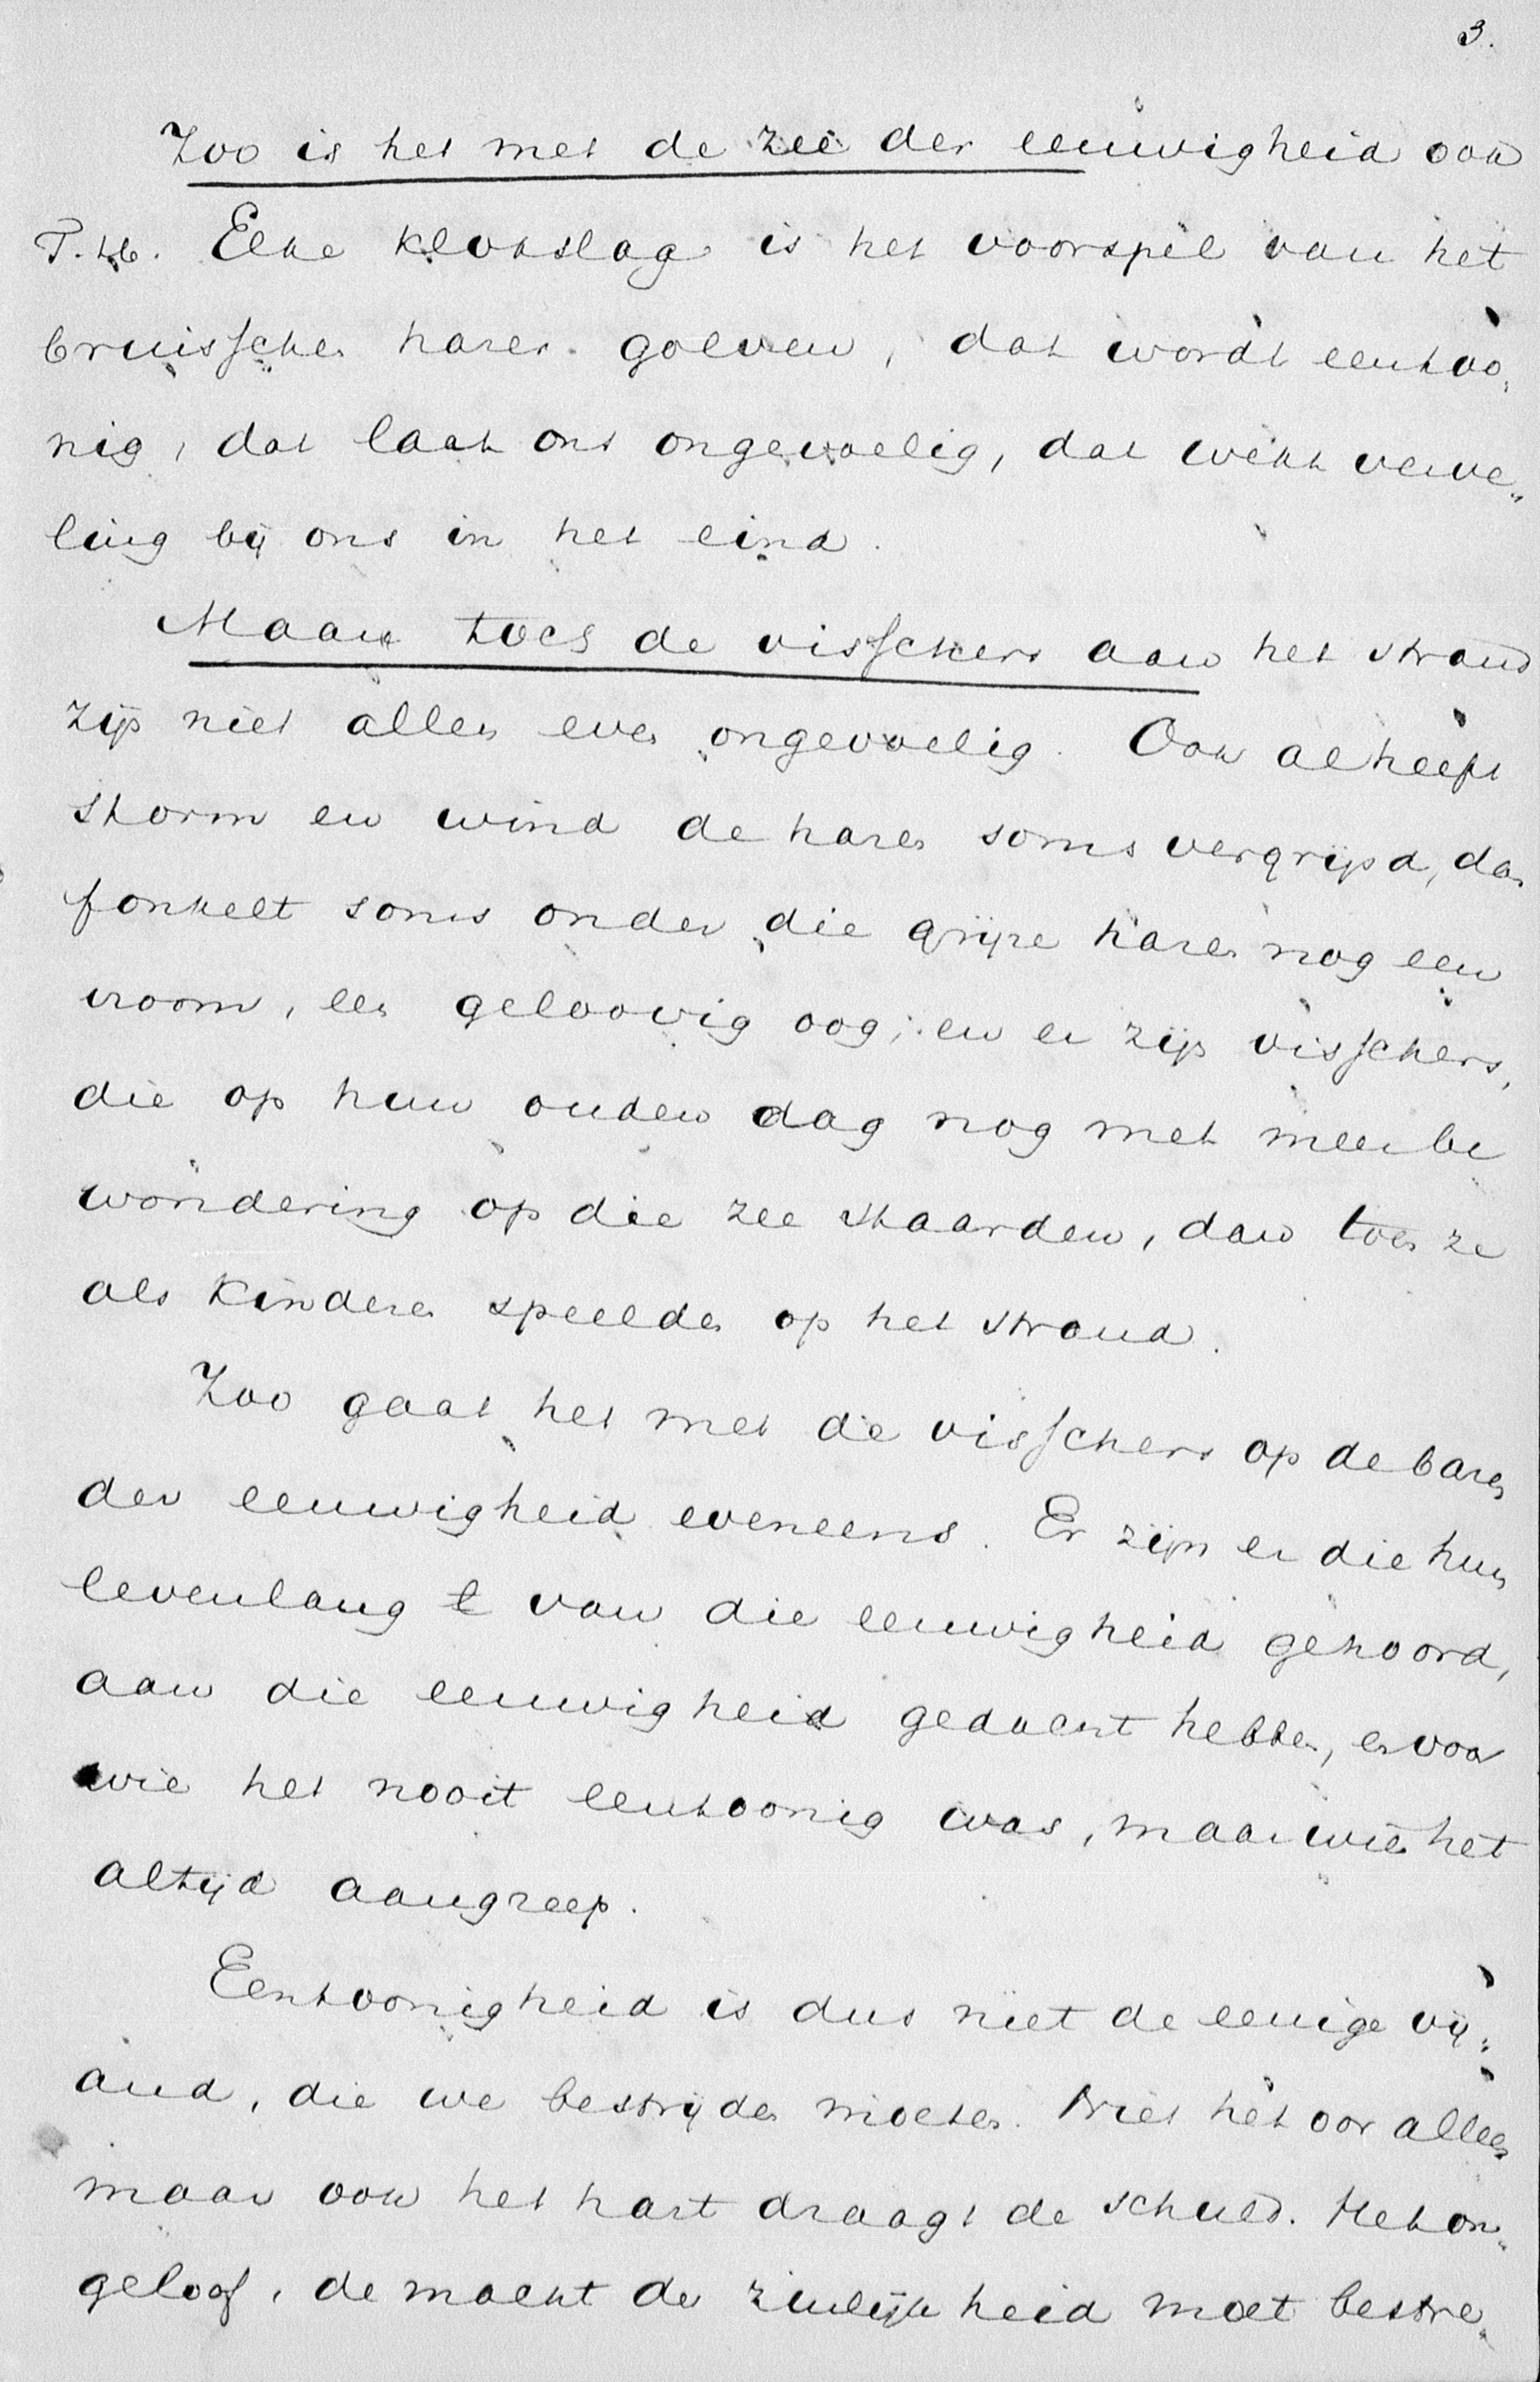 3.
Zoo is het met de zee der eeuwigheid ook
T. H. Elke klokslag is het voorspel van het
bruisschen harer golven, dat wordt eentoo„
nig, dat laat ons ongevoelig, dat wekt verve„
ling bij ons in het eind.
Maar toch de visschers aan het strand
zijn niet allen even ongevoelig. Ook al heeft
storm en wind de haren soms vergrijsd, dan
fonkelt soms onder die grijze haren nog een
vroom, een geloovig oog; en er zijn visschers,
die op hun ouden dag nog met meer be
wondering op die zee staarden, dan toen ze
als kinderen speelden op het strand.
Zoo gaat het met de visschers op de baren
der eeuwigheid eveneens. Er zijn er die hun
levenlang t van die eeuwigheid gehoord,
aan die eeuwigheid gedacht hebben, en voor
wie het nooit eentoonig was, maar wien het
altijd aangreep.
Eentoonigheid is dus niet de eenige vij„
and, die we bestrijden moeten. Niet het oor alleen
maar ook het hart draagt de schuld. Het on„
geloof, de macht der zinlijkheid moet bestre„